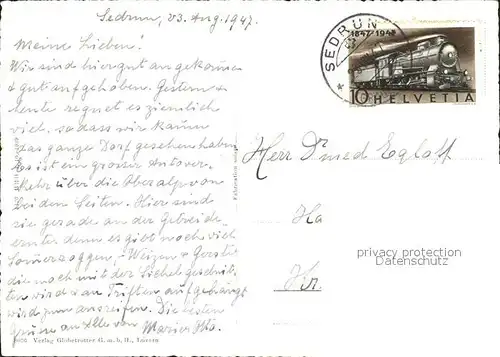 Sedrun, 03. Aug. 1947.
Meine Lieben!
Wir sind hier gut angekommen
+ gut aufgehoben. Gestern +
heute regnet es ziemlich
viel, sodass wir kaum
das ganze Dorf gesehen haben
Es ist ein grosser Autover-
kehr über die Oberalp von
beiden Seiten. Hier sind
sie gerade an der Getreide
ernte denn es gibt noch viel
Sommerroggen, Weizen + Gerste
die noch mit der Sichel geschnit-
ten wird + an Triften aufgehängt
wird zum ausreifen. Die besten
Grüsse an Alle von Marie
Verlag Globetrotter G. m. b. H., Luzern
SEDRUN
1847-1947
10 HELVETIA
Herr Dr med Egloff
Ha
Kr.
privacy protection
Datenschutz